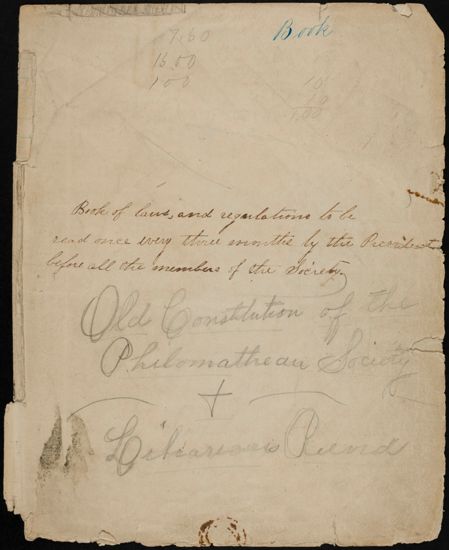 Book
7.60
16.00
1.00
10
1.00
Book of laws, and regulations to be
read once every three months by the President
before all the members of the Society.
Old Constitution of the
Philomathean Society
+
Librarians Record